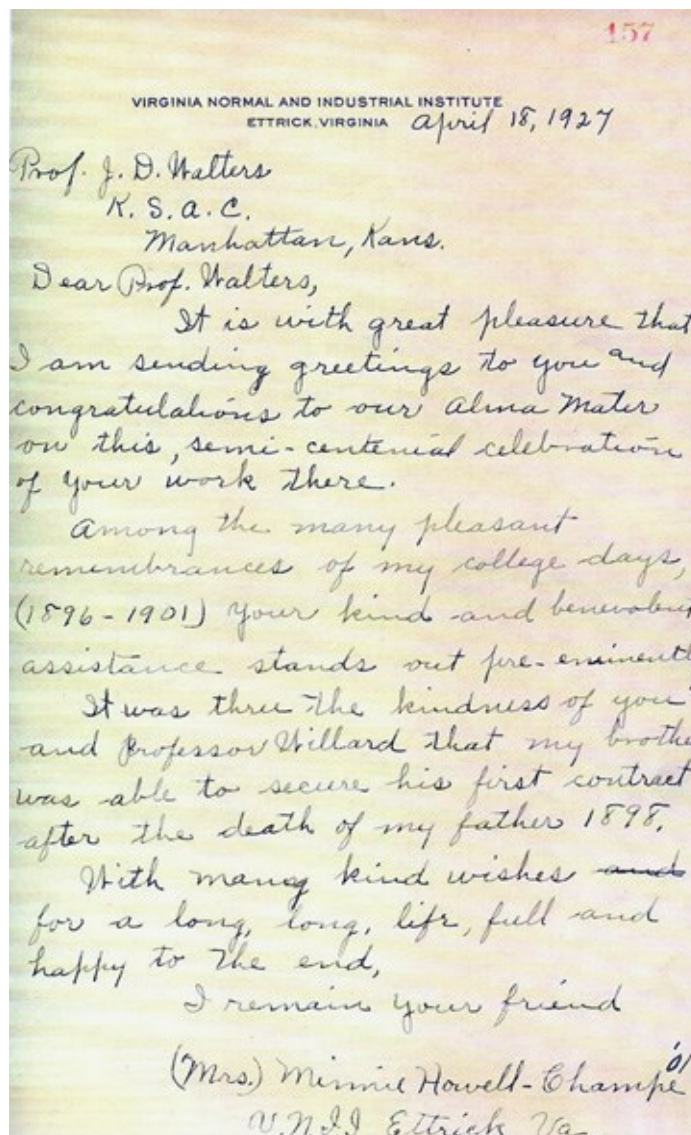 157
VIRGINIA NORMAL AND INDUSTRIAL INSTITUTE
ETTRICK, VIRGINIA April 18, 1927
Prof. J. D. Walters
K. S. A. C.
Manhattan, Kans.
Dear Prof. Walters,
It is with great pleasure that
I am sending greetings to you and
congratulations to our Alma Mater
on this, semi-centenial celebration
of your work there.
Among the many pleasant
remembrances of my college days,
(1896-1901) your kind and benevolent
assistance stands out pre-eminentl
It was thru the kindness of you
and Professor Willard that my brothe
was able to secure his first contract
after the death of my father 1898.
With many kind wishes and
for a long, long, life, full and
happy to the end,
I remain your friend
(Mrs.) Minnie Howell-Champe '01
V.N.I.I. Ettrick Va